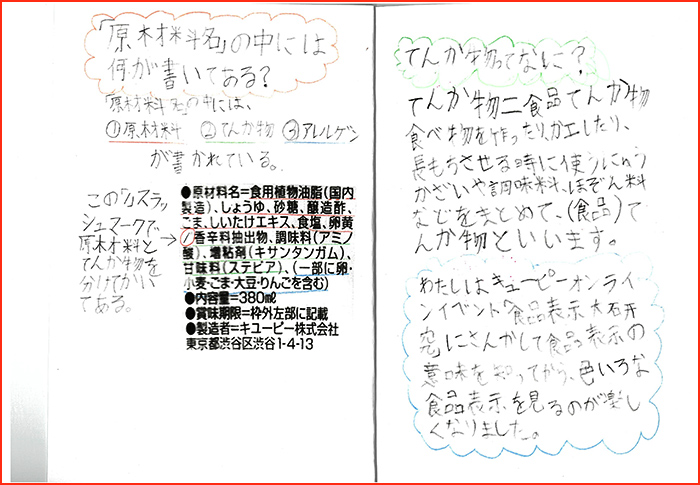 「原材料名」の中には
何が書いてある?
「原材料名」の中には、
①原材料 ②てんか物 ③アレルゲン
が書かれている。
この「/」スラッ
シュマークで
原木材料と
てんか物を
分けてかい
てある。
●原材料名=食用植物油脂(国内
製造)、しょうゆ、砂糖、醸造酢、
ごま、しいたけエキス、食塩、卵黄
/香辛料抽出物、調味料(アミノ
酸)、増粘剤(キサンタンガム)、
甘味料(ステビア)、(一部に卵・
小麦・ごま・大豆・りんごを含む)
●内容量=380㎖
●賞味期限=枠外左部に記載
●製造者=キユーピー株式会社
東京都渋谷区渋谷1-4-13
てんか物ってなに?
てんか物=食品てんか物
食べ物を作ったり、カエしたり、
長もちさせる時に使うにゅう
かざいや調味料、ほぞん料
などをまとめて、(食品)て
んか物といいます。
わたしはキューピーオンライ
ンイベント「食品表示大石开
究」にさんかして食品表示の
意味を知ってから、色いろな
食品表示を見るのが楽し
くなりました。